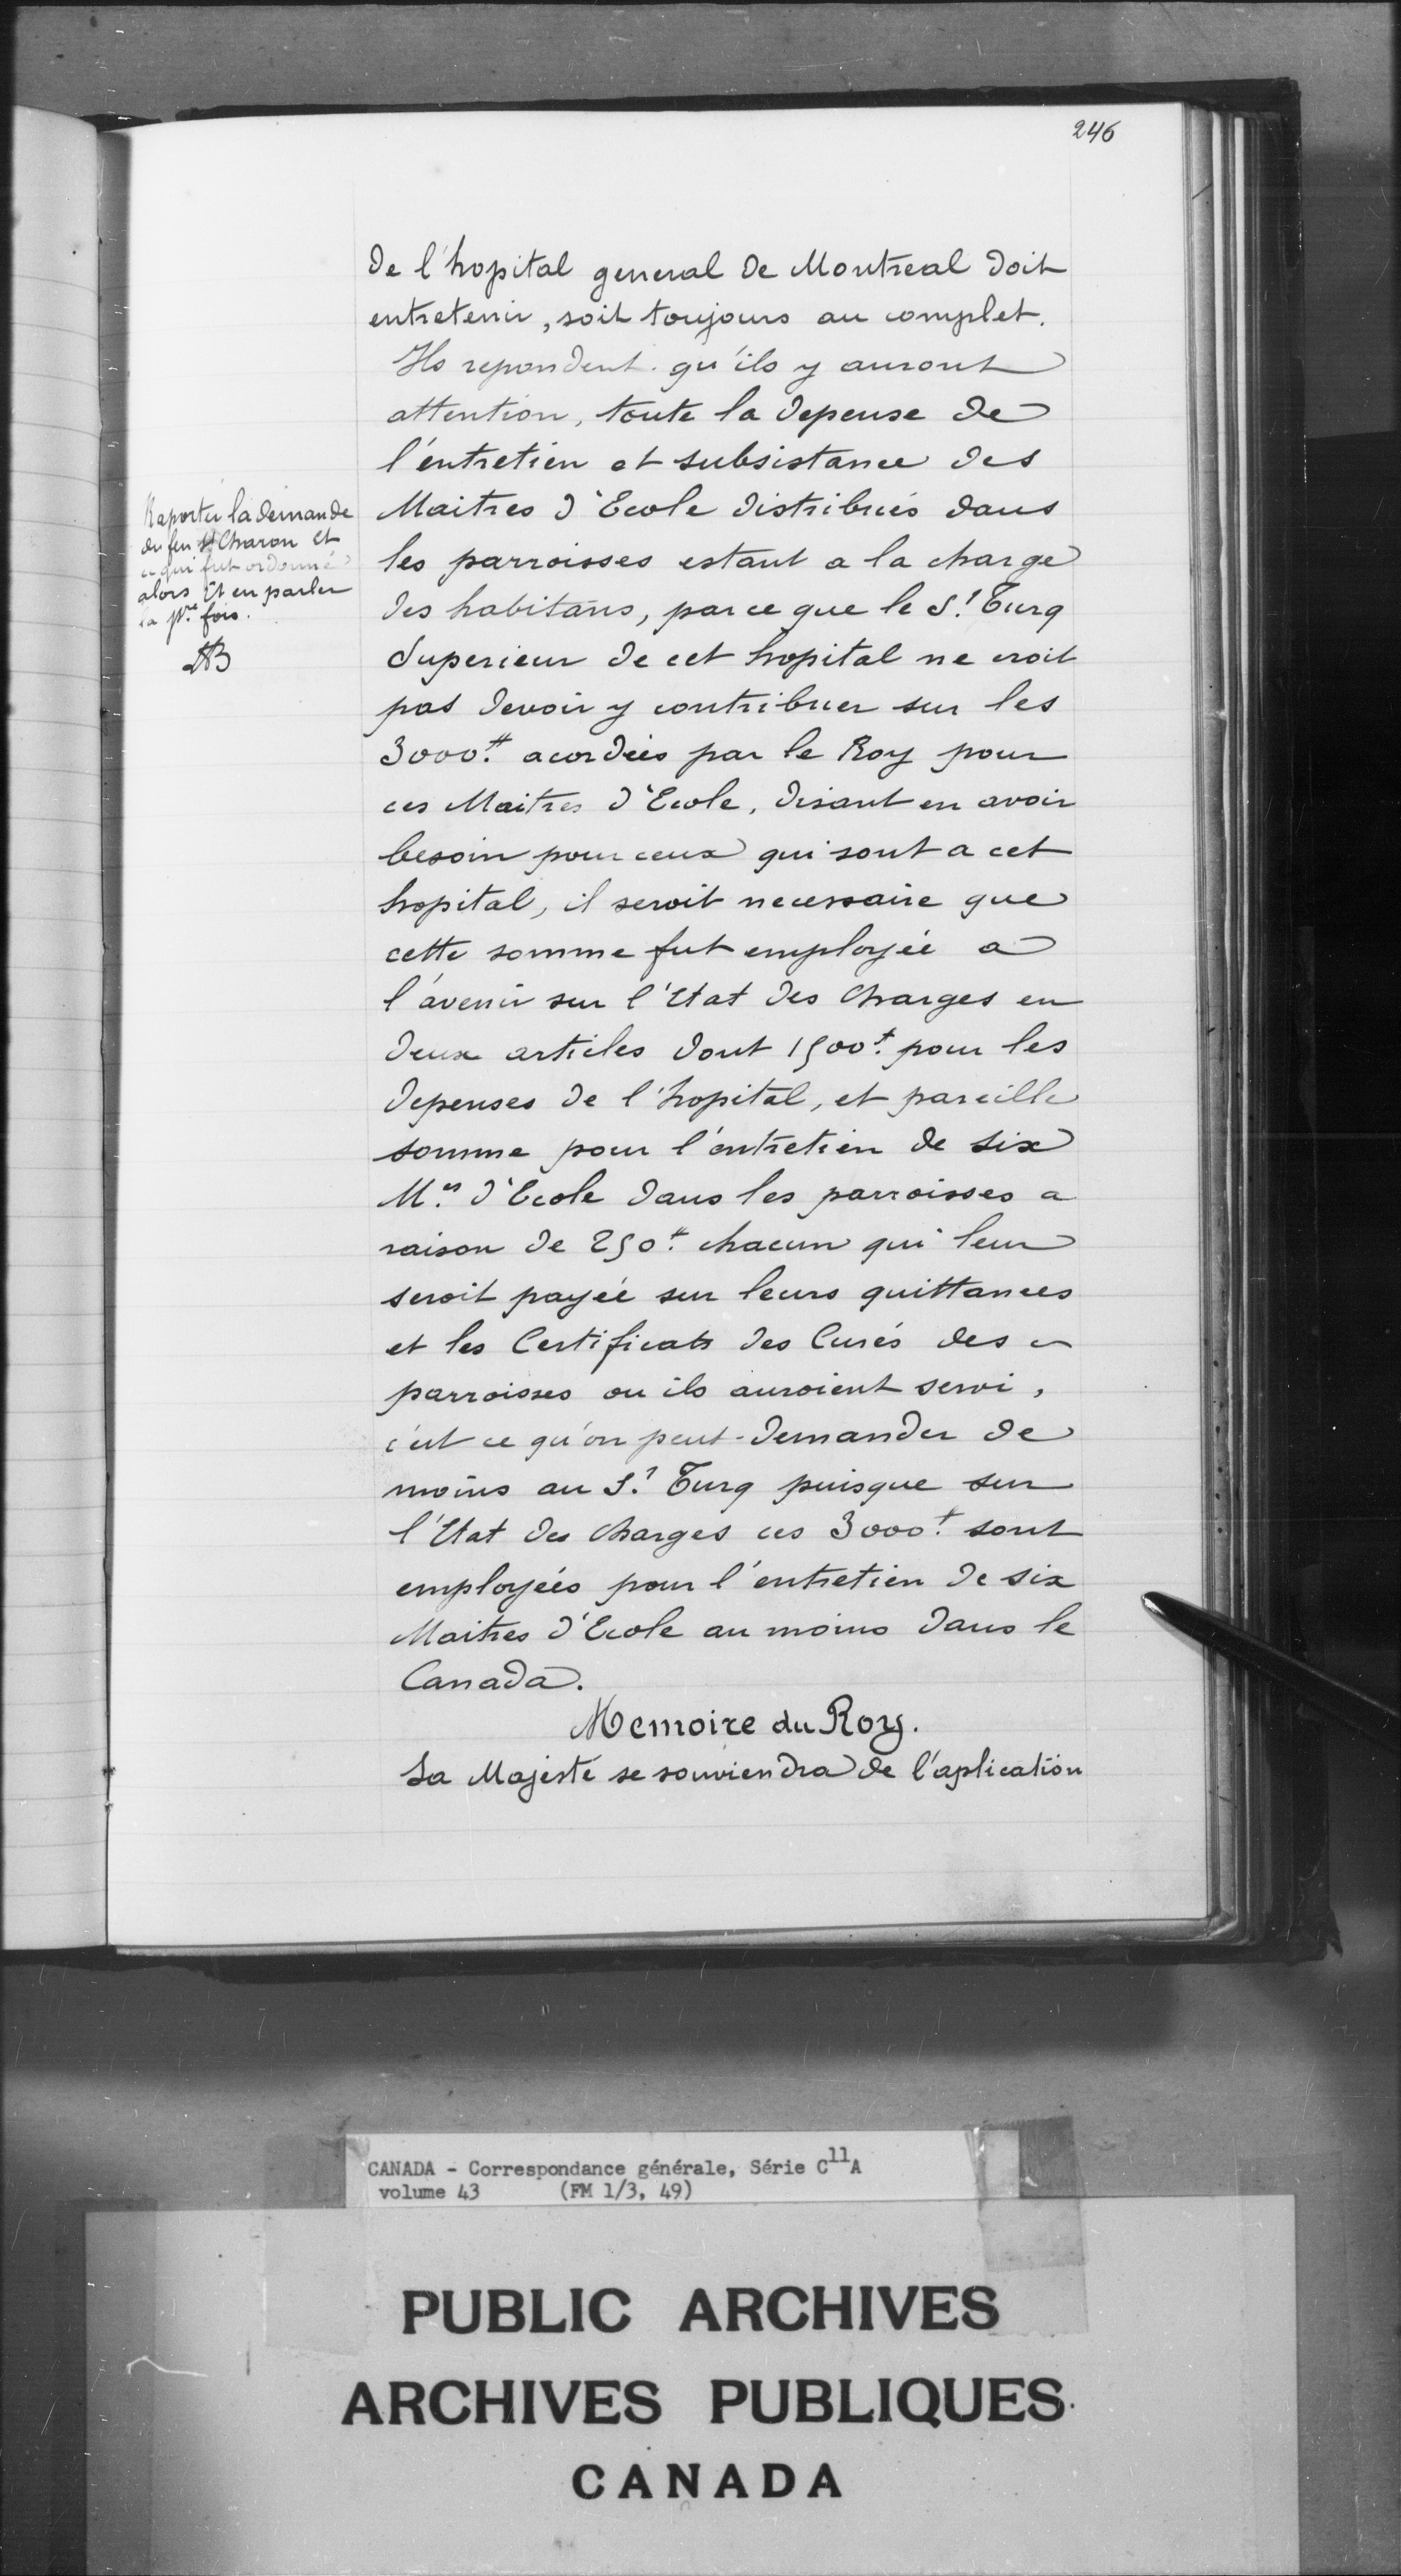 246
de l'hopital general de Montreal doit
entretenir, soit toujours au complet.
Ils repondent qu'ils y auront
attention, toute la depense de
l'entretien et subsistance des
Maitres d'Ecole distribués dans
les parroisses estant a la charge
des habitans, parce que le Sr. Turq
Superieur de cet hopital ne croit
pas devoir y contribuer sur les
3000.₶ acordées par le Roy pour
ces Maitres d'Ecole, disant en avoir
besoin pour ceux qui sont a cet
hopital, il seroit necessaire que
cette somme fut employée a
l'avenir sur l'Etat des Charges en
deux articles dont 1500.₶ pour les
depenses de l'hopital, et pareille
somme pour l'entretien de six
M.es d'Ecole dans les parroisses a
raison de 250.₶ chacun qui leur
seroit payée sur leurs quittances
et les Certificats des Curés des
parroisses ou ils auroient servi,
c'est ce qu'on peut demander de
moins au Sr. Turq puisque sur
l'Etat des charges ces 3000.₶ sont
employées pour l'entretien de six
Maitres d'Ecole au moins dans le
Canada.
Memoire du Roy.
Sa Majesté se souviendra de l'aplication
Raporter la demande
du feu Sr Charon Et
ce qui fut ordonné
alors Et en parler
la pre. fois.
LAB
CANADA - Correspondance générale, Série C11A
volume 43 (FM 1/3, 49)
PUBLIC ARCHIVES
ARCHIVES PUBLIQUES
CANADA